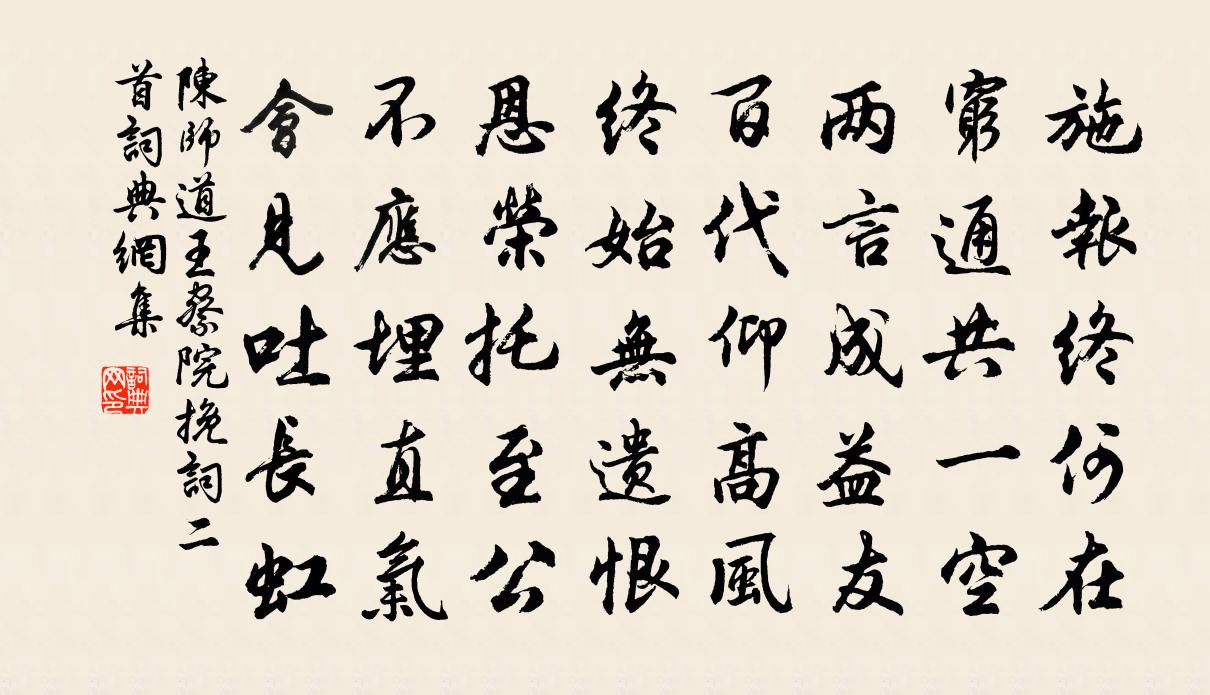 施報終何在
窮通共一空
两言成益友
百代仰高風
終始無遺恨
恩榮托至公
不應埋直氣
會見吐長虹
陳師道王察院挽詞二
首詞典網集
詞典網印